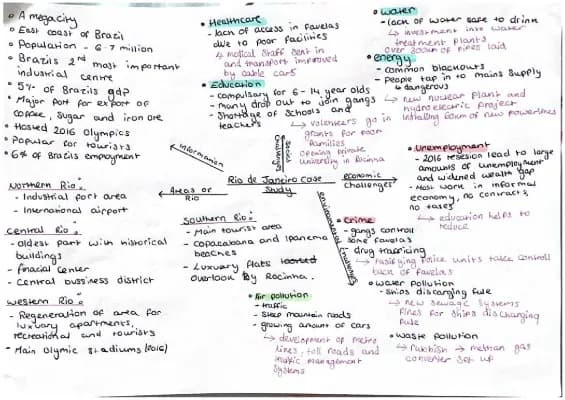 • A megacity
• East coast of Brazil
• Population - 6.7 million
• Brazils 2nd most important
industrial centre
• 5% of Brazils gdp
• Major port for export of
coffee, sugar and iron ore
• Hosted 2016 Olympics
• Popular for tourists
• 6% of Brazils employment
Information
• Healthcare
- lack of access in favelas
due to poor facilities
↳ medical staff sent in
and transport improved
by cable cars
• Education
- compulsary for 6-14 year olds
- many drop out to join gangs
- Shortage of schools and
teachers
↳ volenteers go in
grants for poor
families
opening private
university in Rocinna
Social
Challenges
• water
- lack of water safe to drink
↳ investment into water
treatment plants
over 300km of pipes laid
• energy
- common blackouts
- People tap in to mains supply
↳ dangerous
↳ new nuclear plant and
hydroelectric project
installing 60km of new powerlines
Rio de Janeiro Case
Study
Areas of
Rio
economic
challenges
environmental challenges
• Unemployment
- 2016 resesion lead to large
amounts of unemployment
and widened wealth gap
- Most work in informal
economy, no contracts,
no taxes
↳ education helps to
reduce
• Crime
- gangs controll
some favelas
- drug trafficing
↳ Pasifying Police units take controll
back of favelas
Northern Rio:
- Industrial port area
- International airport
Central Rio:
- oldest part with historical
buildings
- finacial center
- Central bussiness district
Western Rio:
- Regeneration of area for
luxuary apartments,
recreational and tourists
- Main Olymic stadiums (2016)
Southern Rio:
- Main tourist area
- Copacabana and Ipanema
beaches
- Luxuary flats
overlook by Rocinna.
• Air pollution
- traffic
- Steep mountain roads
- growing amount of cars
↳ development of metro
lines, toll roads and
traffic management
systems
• water pollution
- Ships discarging fule
↳ new sewage systems
fines for ships discharging
fule
• waste pollution
↳ Rubbish → methan gas
converter set up